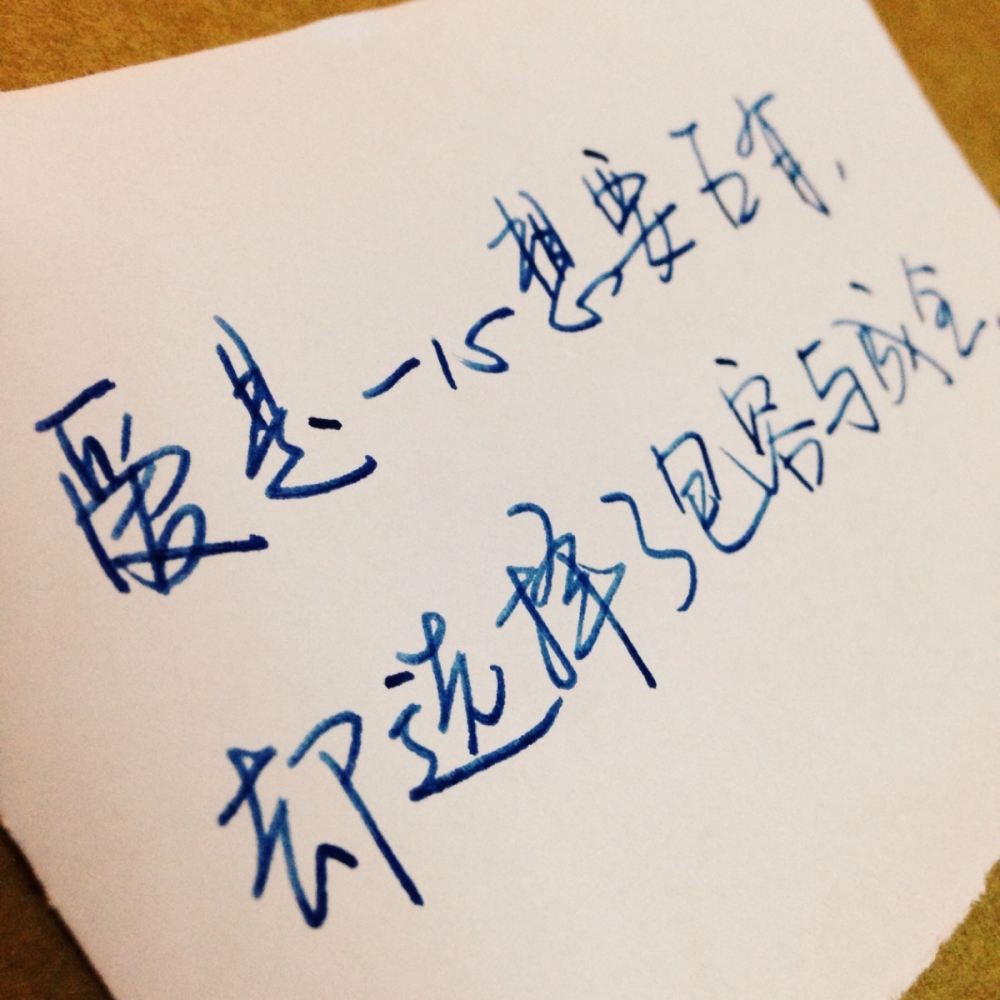 爱是一心想要占有，
却选择了包容与成全。